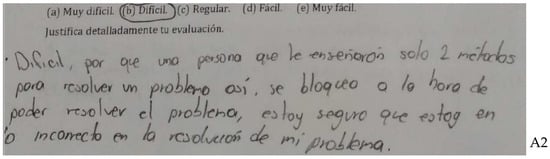 (a) Muy difícil. (b) Difícil. (c) Regular. (d) Fácil. (e) Muy fácil.
Justifica detalladamente tu evaluación.
· Dificil, por que una persona que le enseñarón solo 2 métodos
para resolver un problema así, se bloquea a la hora de
poder resolver el problema, estoy seguro que estoy en
lo incorrecto en la resolución de mi problema.
A2